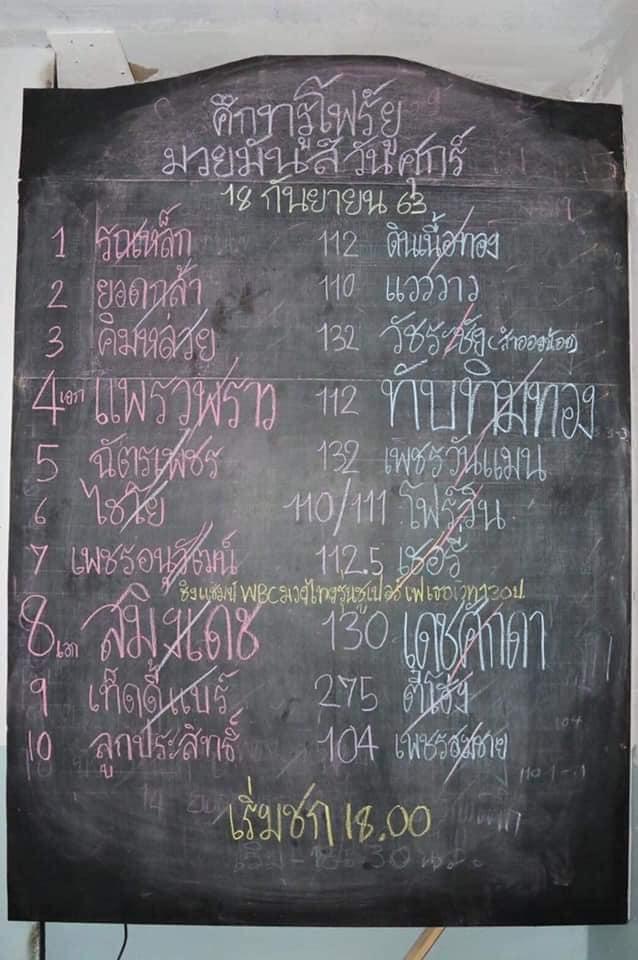 ศึกทรูโฟร์ยู
มวยมันส์วันศุกร์
18 กันยายน 63
1 รณเหล็ก 112 ดินเนื้อทอง
2 ยอดกล้า 110 แวววาว
3 คิมหล่วย 132 วัชระชัย
4 เอก แพรวพราว 112 ทับทิมทอง
5 ฉัตรเพชร 132 เพชรวันแมน
6 ไชโย 110/111 โฟร์วิน
7 เพชรอนุวัฒน์ 112.5 เชอรี่
ชิงแชมป์ WBC มวยไทยรุ่นซูเปอร์ไลท์ 130 ป.
8 เอก สมิงเดช 130 เดชศักดา
9 เท็ดดี้แบร์ 275 ตี๋โฮ่ง
10 ลูกประสิทธิ์ 104 เพชรชมชาย
เริ่มชก 18.00